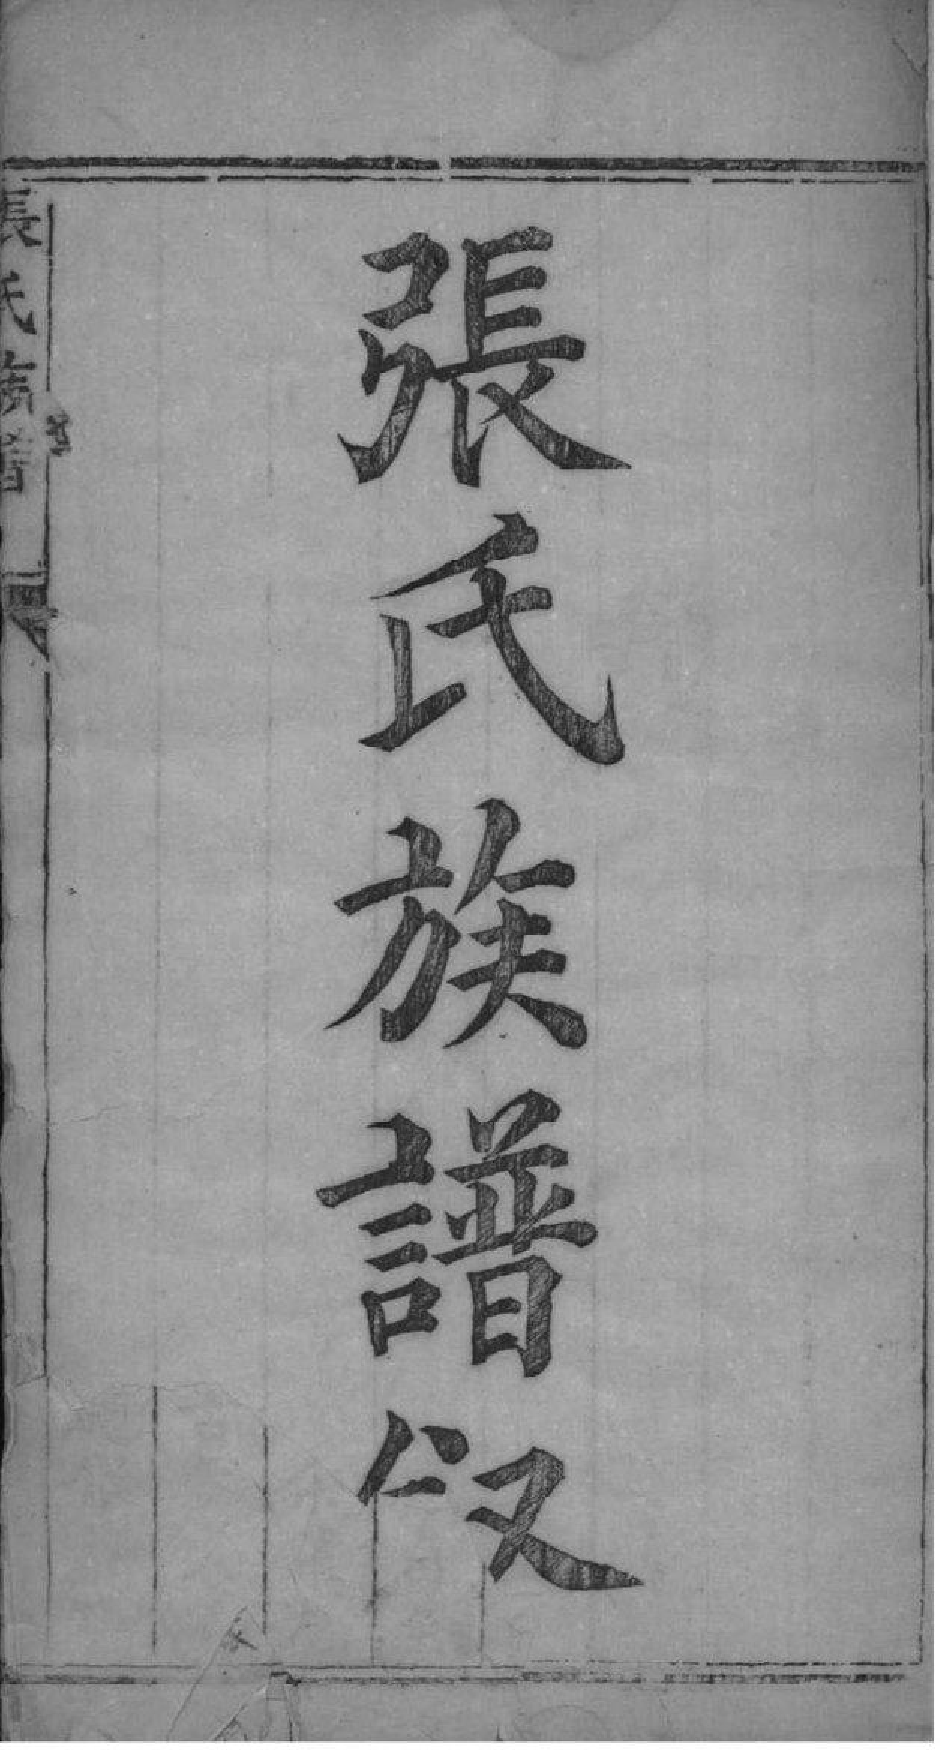 張氏族譜
張氏族譜